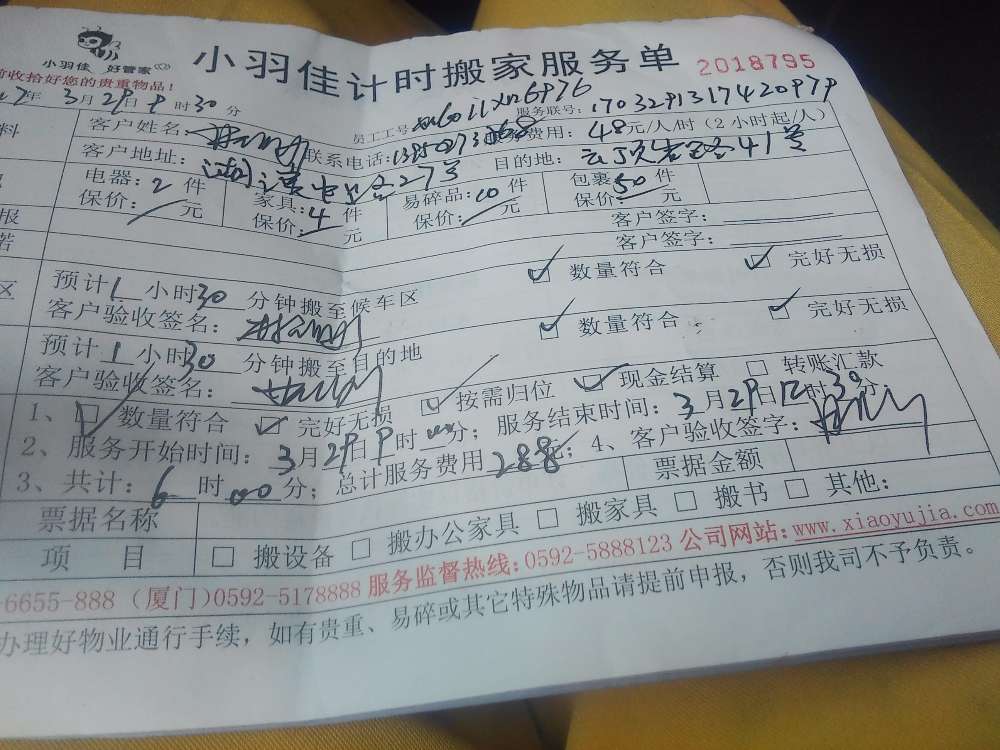 小羽佳 好管家
小羽佳计时搬家服务单 2018795
前收拾好您的贵重物品!
年 3月29日9时30分 员工工号 服务联号: 1703291317420979
料 客户姓名: 联系电话: 费用: 48元/人/时(2小时起/人)
客户地址: 27号 目的地: 云顶 41号
电器: 2件 家具: 4件 易碎品: 10件 包裹: 50件
保价: 元 保价: 元 保价: 元 保价: 元
报 客户签字:
若 客户签字:
区 预计1小时30分钟搬至候车区 数量符合 完好无损
客户验收签名:
预计1小时30分钟搬至目的地 数量符合 完好无损
客户验收签名:
1、 数量符合 完好无损 按需归位 现金结算 转账汇款
2、服务开始时间: 3月29日9时00分; 服务结束时间: 3月29日12时30分
3、共计: 6时00分; 总计服务费用288元; 4、客户验收签字:
票据名称 票据金额
项 目 搬设备 搬办公家具 搬家具 搬书 其他:
-6655-888 (厦门)0592-5178888 服务监督热线: 0592-5888123 公司网站: www.xiaoyujia.com
办理好物业通行手续, 如有贵重、易碎或其它特殊物品请提前申报, 否则我司不予负责。